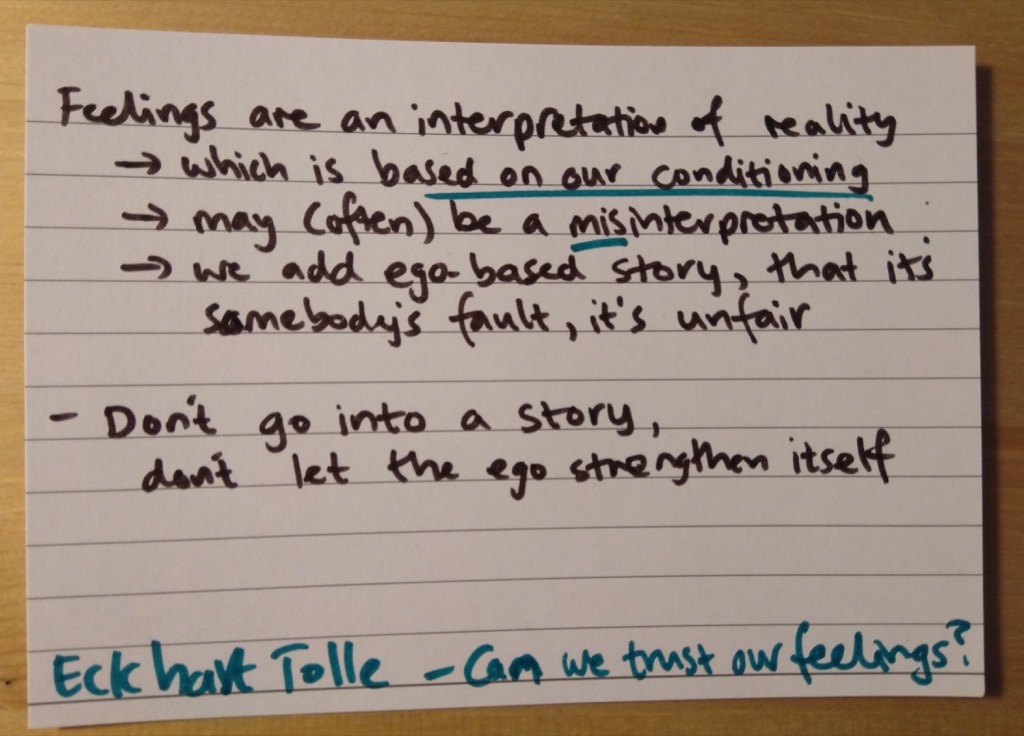 Feelings are an interpretation of reality
→ which is based on our conditioning
→ may (often) be a misinterpretation
→ we add ego-based story, that it's
somebody's fault, it's unfair
- Don't go into a story,
don't let the ego strengthen itself
Eckhart Tolle - Can we trust our feelings?